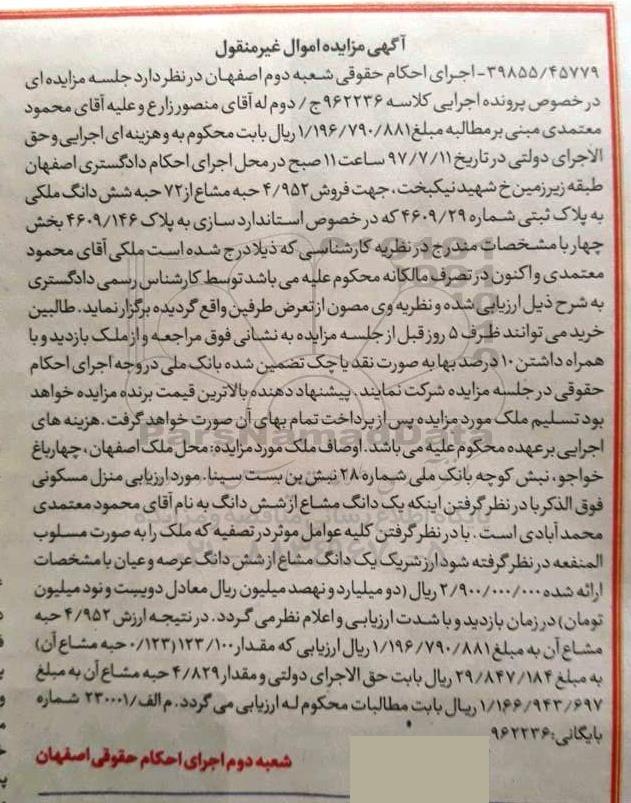 آگهی مزایده اموال غیرمنقول
۳۹۸۵۵/۴۵۷۷۹- اجرای احکام حقوقی شعبه دوم اصفهان در نظر دارد جلسه مزایده ای
در خصوص پرونده اجرایی کلاسه ۹۶۲۲۳۶ج/ دوم له آقای منصور زارع و علیه آقای محمود
معتمدی مبنی بر مطالبه مبلغ ۱/۱۹۶/۷۹۰/۸۸۱ ریال بابت محکوم به و هزینه ای اجرایی و حق
الاجرای دولتی در تاریخ ۹۷/۷/۱۱ ساعت ۱۱ صبح در محل اجرای احکام دادگستری اصفهان
طبقه زیرزمین خ شهید نیکبخت، جهت فروش ۴/۹۵۲ حبه مشاع از ۷۲ حبه شش دانگ ملکی
به پلاک ثبتی شماره ۴۶۰۹/۲۹ که در خصوص استاندارد سازی به پلاک ۴۶۰۹/۱۴۶ بخش
چهار با مشخصات مندرج در نظریه کارشناسی که ذیلا درج شده است ملکی آقای محمود
معتمدی و اکنون در تصرف مالکانه محکوم علیه می باشد توسط کارشناس رسمی دادگستری
به شرح ذیل ارزیابی شده و نظریه وی مصون از تعرض طرفین واقع گردیده برگزار نماید. طالبین
خرید می توانند ظرف ۵ روز قبل از جلسه مزایده به نشانی فوق مراجعه و از ملک بازدید و با
همراه داشتن ۱۰ درصد بها به صورت نقد یا چک تضمین شده بانک ملی در وجه اجرای احکام
حقوقی در جلسه مزایده شرکت نمایند. پیشنهاد دهنده بالاترین قیمت برنده مزایده خواهد
بود تسلیم ملک مورد مزایده پس از پرداخت تمام بهای آن صورت خواهد گرفت. هزینه های
اجرایی بر عهده محکوم علیه می باشد. اوصاف ملک مورد مزایده: محل ملک اصفهان، چهارباغ
خواجو، نبش کوچه بانک ملی شماره ۲۸ نبش بن بست سینا. مورد ارزیابی منزل مسکونی
فوق الذکر با در نظر گرفتن اینکه یک دانگ مشاع از شش دانگ به نام آقای محمود معتمدی
محمد آبادی است. با در نظر گرفتن کلیه عوامل موثر در تصفیه که ملک را به صورت مسلوب
المنفعه در نظر گرفته شود ارز شریک یک دانگ مشاع از شش دانگ عرصه و عیان با مشخصات
ارائه شده ۲/۹۰۰/۰۰۰/۰۰۰ ریال (دو میلیارد و نهصد میلیون ریال معادل دویست و نود میلیون
تومان) در زمان بازدید و با شدت ارزیابی و اعلام نظر می گردد. در نتیجه ارزش ۴/۹۵۲ حبه
مشاع آن به مبلغ ۱/۱۹۶/۷۹۰/۸۸۱ ریال ارزیابی که مقدار ۱۲۳/۱۰۰ (۰/۱۲۳ حبه مشاع آن)
به مبلغ ۲۹/۸۴۷/۱۸۴ ریال بابت حق الاجرای دولتی و مقدار ۴/۸۲۹ حبه مشاع آن به مبلغ
۱/۱۶۶/۹۴۳/۶۹۷ ریال بابت مطالبات محکوم له ارزیابی می گردد. م الف/۲۳۰۰۰۱ شماره
بایگانی: ۹۶۲۲۳۶
شعبه دوم اجرای احکام حقوقی اصفهان
ParsNamadData